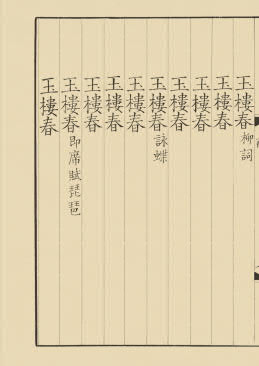 玉樓春柳詞
玉樓春
玉樓春
玉樓春
玉樓春詠蝶
玉樓春
玉樓春
玉樓春
玉樓春即席賦琵琶
玉樓春